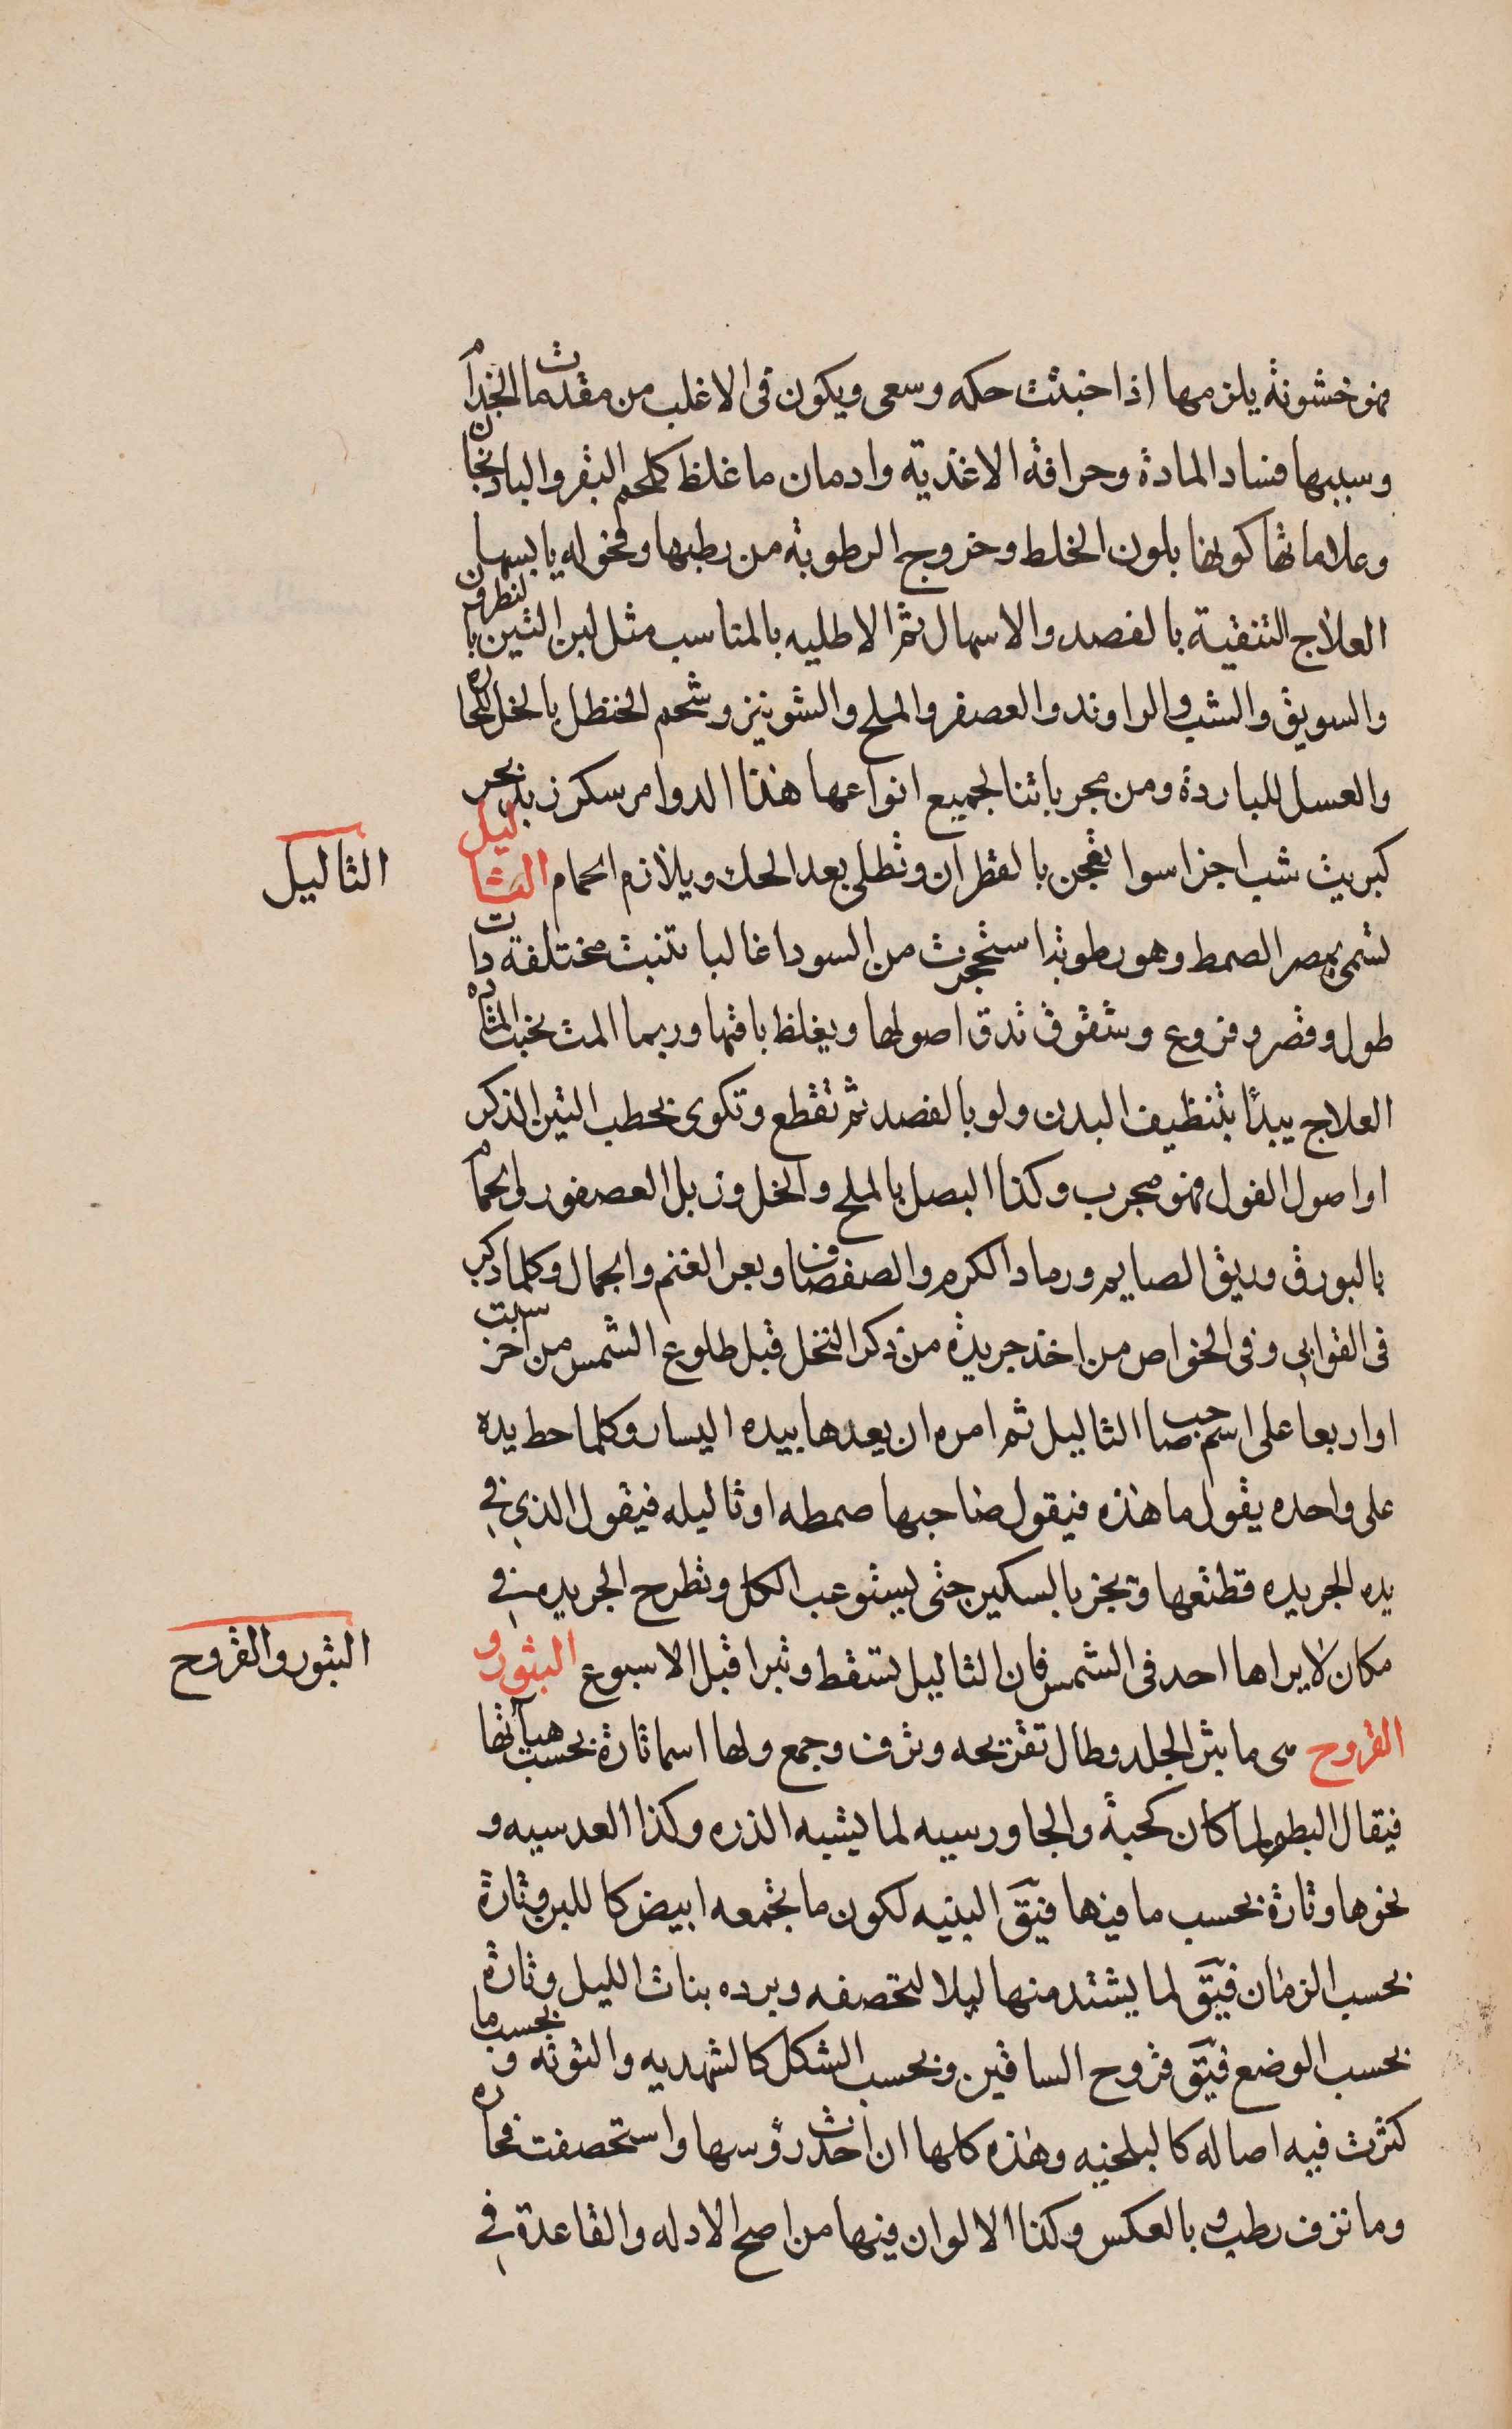 فهو خشونة يلزمها اذا خبثت حكه وسعى ويكون فى الاغلب من مقدمات الجذام
وسببها فساد المادة وحرافة الاغذيه وادمان ما غلظ كلحم البقر والبادنجان
وعلاماتها كونها بلون الخلط وخروج الرطوبة من رطبها وقحوله يابسها
العلاج التنقية بالفصد والاسهال ثم الاطليه بالمناسب مثل لبن التين بالنطرون
والسويق والشب والراوند والعصفر والملح والشونيز وشحم الحنظل بالخل للحاره
والعسل للباردة ومن مجرباتنا لجميع انواعها هذا الدوا مر سكر زبد بحر
كبريت شب اجزا سوا تعجن بالقطران وتطلى بعد الحك ويلازم الحمام الثاليل
الثاليل
تسمى بمصر الصمط وهو رطوبة استحجرت من السودا غالبا تنبت مختلفة ذات
طول وقصر وفروع وشقوق تدق اصولها ويغلظ باقيها وربما المت بخبث المادة
العلاج يبدأ بتنظيف البدن ولو بالفصد ثم تقطع وتكوى بحطب التين الذكر
او اصول الفول فهو مجرب وكذا البصل بالملح والخل وزبل العصفور والحمام
بالبورق وريق الصايم ورماد الكرم والصفصاف وبعر الغنم والجمال وكلما ذكر
فى القوابى وفى الخواص من اخذ جريدة من ذكر النخل قبل طلوع الشمس من اخر سبت
او اربعا على اسم صاحب الثاليل ثم امره ان يعدها بيده اليسار وكلما حط يده
على واحده يقول ما هذه فيقول صاحبها صمطه او ثاليله فيقول الذي في
يده الجريده قطعتها ويحز بالسكين حتى يستوعب الكل وتطرح الجريده في
مكان لا يراها احد فى الشمس فان الثاليل تسقط وتبرا قبل الاسبوع البثور و
البثور والقروح
القروح هى ما بثر الجلد وطال تقريحه ونزف وجمع ولها اسما تارة بحسب هيأتها
فيقال البطم لما كان كحبة والجاورسيه لما يشبه الذره وكذا العدسيه و
نحوها وتارة بحسب ما فيها فيق البنيه لكون ما تجمعه ابيض كاللبن وتارة
بحسب الزمان فيق لما يشتد منها ليلا لتحصفه وبرده بنات الليل وتارة
بحسب الوضع فيق قروح الساقين وبحسب الشكل كالشهديه والتوته وبحسب ما
كثرت فيه اصاله كالبلخيه وهذه كلها ان احدت رؤسها واستحصفت فحاره
وما نزف رطب وبالعكس وكذا الالوان فيها من اصح الادله والقاعدة في